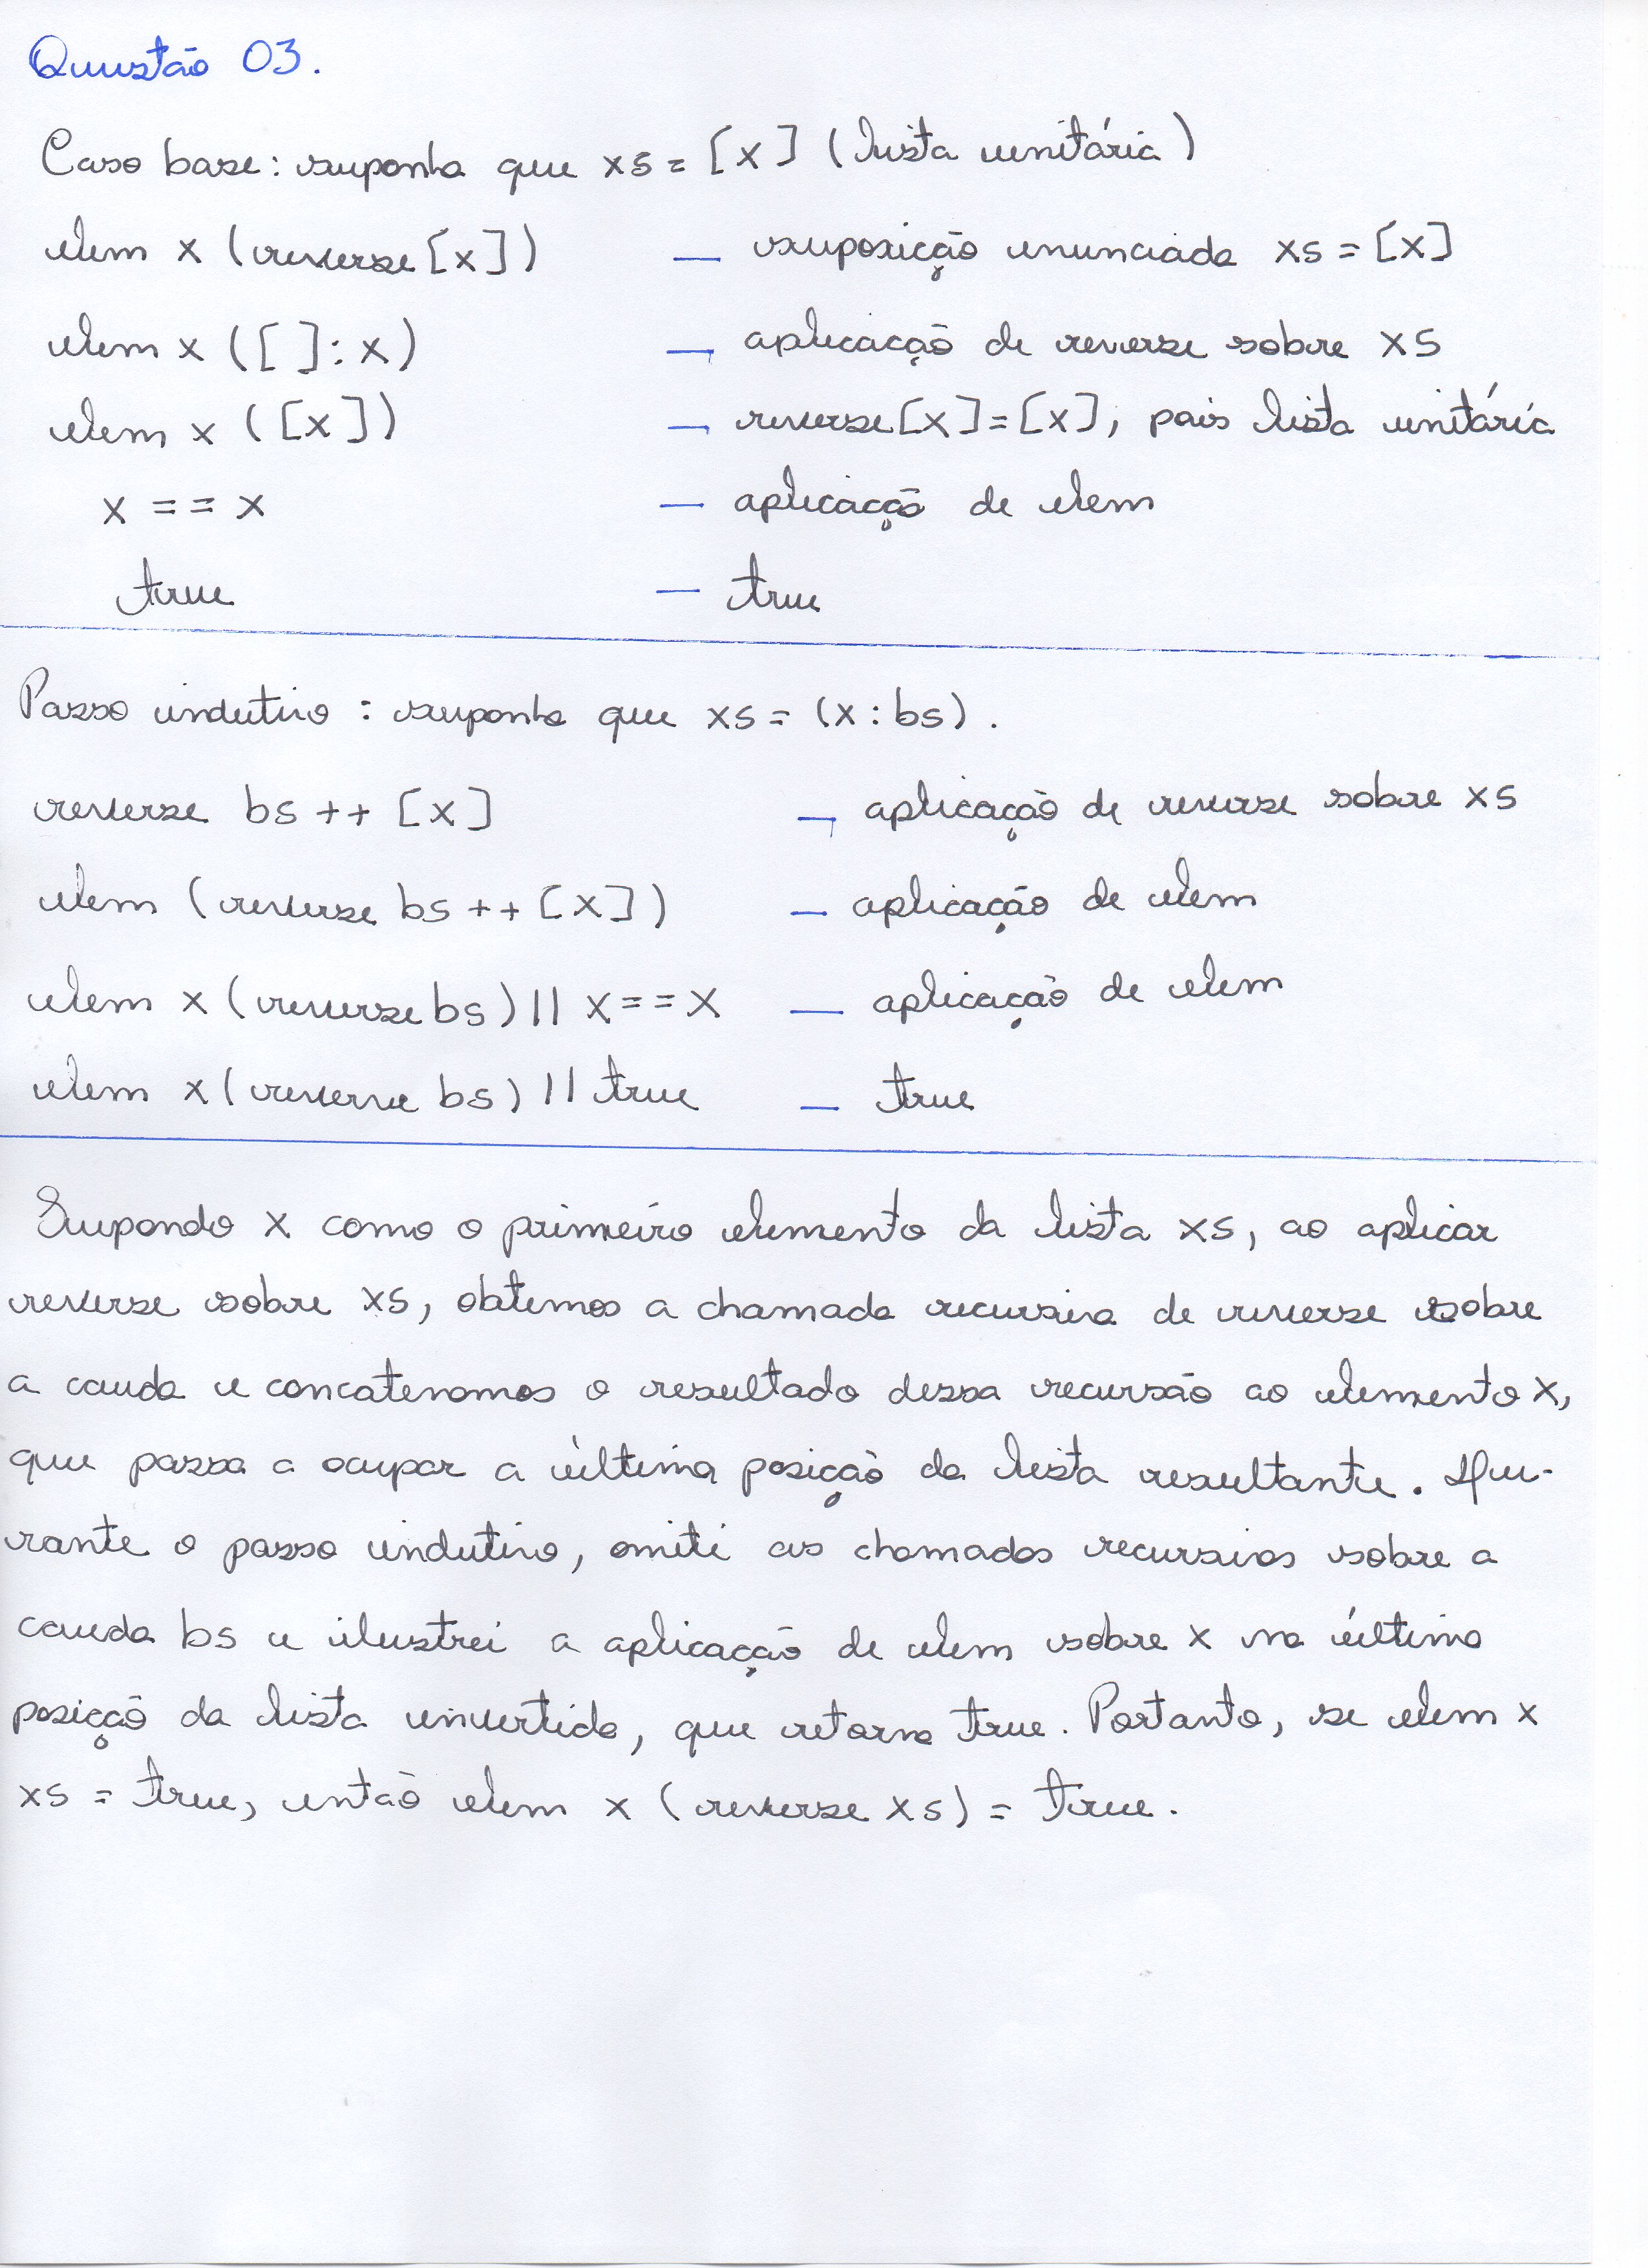 Questão 03.
Caso base: suponha que xs = [x] (lista unitária)
elem x (reverse [x]) — suposição enunciada xs = [x]
elem x ([ ]: x) — aplicação de reverse sobre xs
elem x ([x]) — reverse [x] = [x], pois lista unitária
x == x — aplicação de elem
true — true
Passo indutivo: suponha que xs = (x : bs).
reverse bs ++ [x] — aplicação de reverse sobre xs
elem (reverse bs ++ [x]) — aplicação de elem
elem x (reverse bs) || x == x — aplicação de elem
elem x (reverse bs) || true — true
Supondo x como o primeiro elemento da lista xs, ao aplicar
reverse sobre xs, obtemos a chamada recursiva de reverse sobre
a cauda e concatenamos o resultado dessa recursão ao elemento x,
que passa a ocupar a última posição da lista resultante. Du-
rante o passo indutivo, omiti as chamadas recursivas sobre a
cauda bs e ilustrei a aplicação de elem sobre x na última
posição da lista invertida, que retorna true. Portanto, se elem x
xs = true, então elem x (reverse xs) = true.